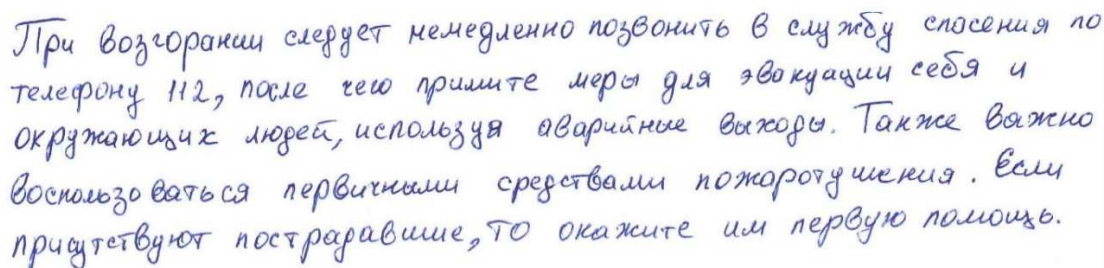 При возгорании следует немедленно позвонить в службу спасения по
телефону 112, после чего примите меры для эвакуации себя и
окружающих людей, используя аварийные выходы. Также важно
воспользоваться первичными средствами пожаротушения. Если
присутствуют пострадавшие, то окажите им первую помощь.